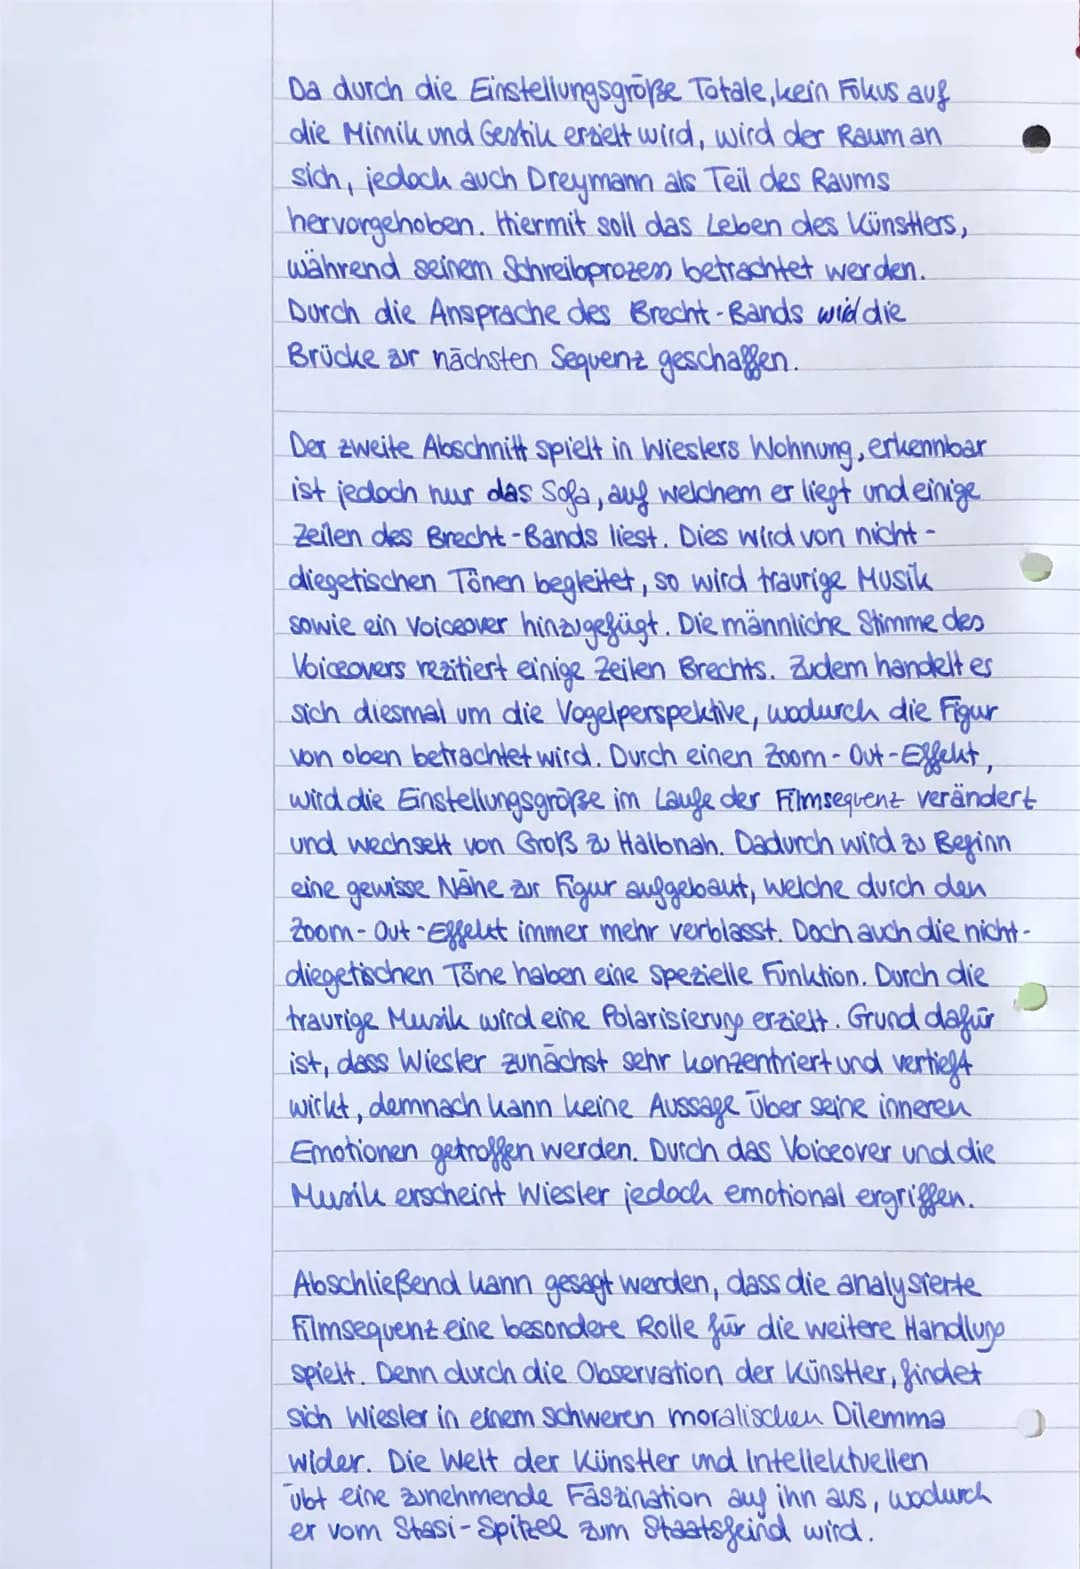 Da durch die Einstellungsgröße Totale, kein Fokus auf
die Mimik und Gestik erzielt wird, wird der Raum an
sich, jedoch auch Dreymann als Teil des Raums
hervorgehoben. Hiermit soll das Leben des Künstlers,
während seinem Schreibprozess betrachtet werden.
Durch die Ansprache des Brecht-Bands wird die
Brücke zur nächsten Sequenz geschaffen.
Der zweite Abschnitt spielt in Wieslers Wohnung, erkennbar
ist jedoch nur das Sofa, auf welchem er liegt und einige
Zeilen des Brecht-Bands liest. Dies wird von nicht-
diegetischen Tönen begleitet, so wird traurige Musik
sowie ein Voiceover hinzugefügt. Die männliche Stimme des
Voiceovers rezitiert einige Zeilen Brechts. Zudem handelt es
sich diesmal um die Vogelperspektive, wodurch die Figur
von oben betrachtet wird. Durch einen Zoom-Out-Effekt,
wird die Einstellungsgröße im Laufe der Filmsequenz verändert
und wechselt von Groß zu Halbnah. Dadurch wird zu Beginn
eine gewisse Nähe zur Figur aufgebaut, welche durch den
Zoom-Out-Effekt immer mehr verblasst. Doch auch die nicht-
diegetischen Töne haben eine spezielle Funktion. Durch die
traurige Musik wird eine Polarisierung erzielt. Grund dafür
ist, dass Wiesler zunächst sehr konzentriert und vertieft
wirkt, demnach kann keine Aussage über seine inneren
Emotionen getroffen werden. Durch das Voiceover und die
Musik erscheint Wiesler jedoch emotional ergriffen.
Abschließend kann gesagt werden, dass die analysierte
Filmsequenz eine besondere Rolle für die weitere Handlung
spielt. Denn durch die Observation der Künstler, findet
sich Wiesler in einem schweren moralischen Dilemma
wider. Die Welt der Künstler und Intellektuellen
übt eine zunehmende Faszination auf ihn aus, wodurch
er vom Stasi-Spitzel zum Staatsfeind wird.